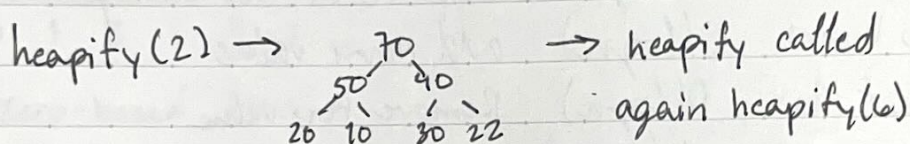 heapify(2) → 70 → heapify called
50 40 again heapify(6)
20 10 30 22